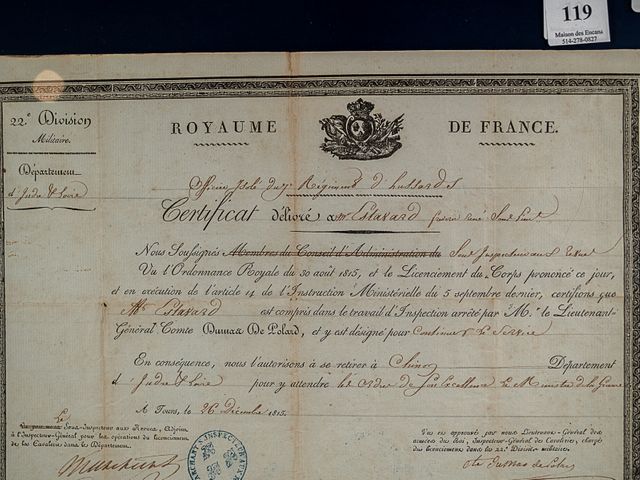 119
Maison des Encans
514-278-0827
22e Division
Militaire.
Département
d'Indre & Loire
ROYAUME DE FRANCE.
Officier Isolé du 7e Régiment d'hussards
Certificat délivré a Mr Estavard
Nous Soussignés Membres du Conseil d'Administration du Sous Inspecteur aux Revues
Vu l'Ordonnance Royale du 30 aout 1815, et le Licenciement du Corps prononcé ce jour,
et en exécution de l'article 14 de l'Instruction Ministérielle du 5 septembre dernier, certifions que
Mr Estavard est compris dans le travail d'Inspection arrêté par M. le Lieutenant-
Général Comte Dumas De Polard, et y est désigné pour Continuer Le Service
En conséquence, nous l'autorisons à se retirer à Chinon Département
d'Indre & Loire pour y attendre les Ordres de Son Excellence Le Ministre de la Guerre
A Tours, le 26 Décembre 1815.
Le Sous-Inspecteur aux Revues, Adjoint
à l'Inspecteur-Général pour les opérations du licenciement
de la Cavalerie dans le Département.
Vu et approuvé par nous Lieutenant-Général des
armées du Roi, Inspecteur-Général de Cavalerie, chargé
du licenciement dans la 22e Division militaire.